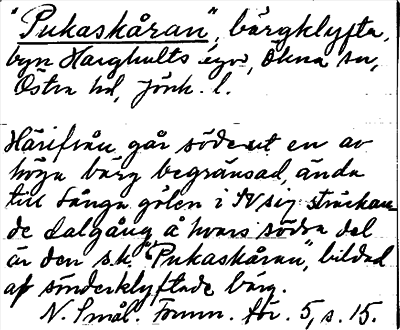 "Pukaskåran", bärgklyfta,
byn Harghults ägor, Ökna sn,
Östra hd, Jönk. l.
Härifrån går söderut en av
höga bärg begränsad, ända
till Långa gölen i SV sig sträckan-
de dalgång å hvars södra del
är den s.k. "Pukaskåran", bildad
af sönderklyftade bärg.
N. Smål. Fornm. för. 5, s. 15.